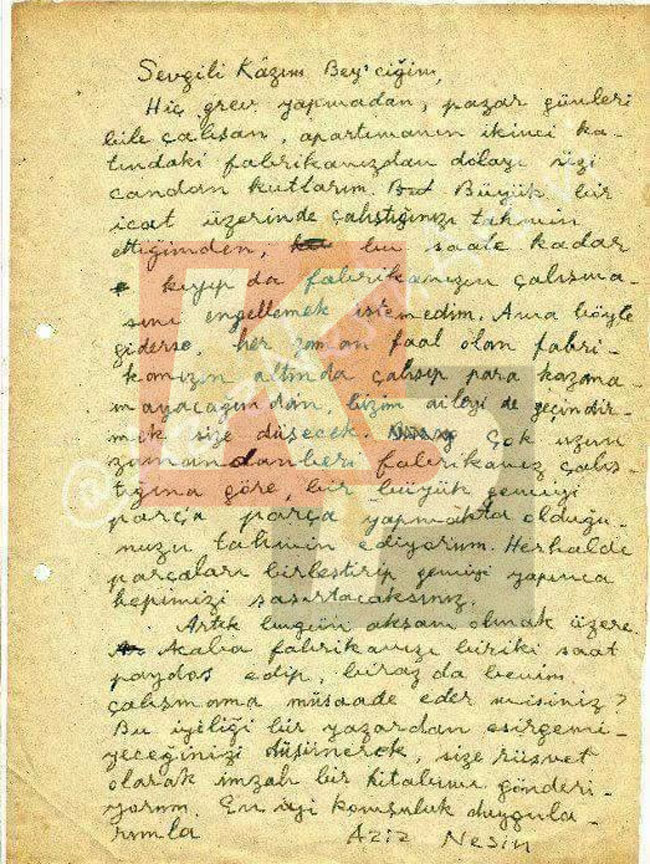 Sevgili Kâzım Bey'ciğim,
Hiç grev yapmadan, pazar günleri
bile çalışan, apartımanın ikinci ka-
tındaki fabrikanızdan dolayı sizi
candan kutlarım. Büyük bir
icat üzerinde çalıştığınızı tahmin
ettiğimden, bu saate kadar
kıyıp da fabrikanızın çalışma-
sını engellemek istemedim. Ama böyle
giderse, her zaman faal olan fabri-
kanızın altında çalışıp para kazana-
mayacağımdan, bizim aileyi de geçindir-
mek size düşecek. Çok uzun
zamandanberi fabrikanız çalış-
tığına göre, bir büyük gemiyi
parça parça yapmakta olduğu-
nuzu tahmin ediyorum. Herhalde
parçaları birleştirip gemiyi yapınca
hepimizi şaşırtacaksınız.
Artık bugün akşam olmak üzere.
Acaba fabrikanızı biriki saat
paydos edip, biraz da benim
çalışmama müsaade eder misiniz?
Bu iyiliği bir yazardan esirgemi-
yeceğinizi düşünerek, size rüşvet
olarak imzalı bir kitabımı gönderi-
yorum. En iyi komşuluk duygula-
rımla Aziz Nesin